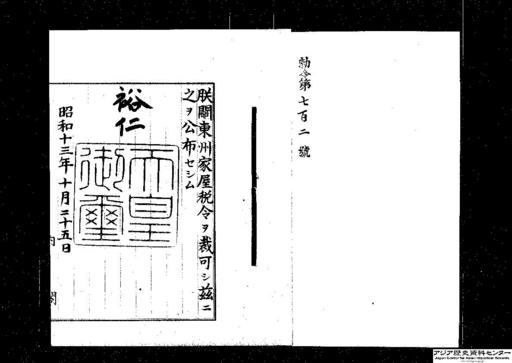 勅令第七百二號
朕關東州家屋税令ヲ裁可シ茲ニ
之ヲ公布セシム
裕仁
天皇
御璽
昭和十三年十月二十五日
内閣
アジア歴史資料センター
Japan Center for Asian Historical Records